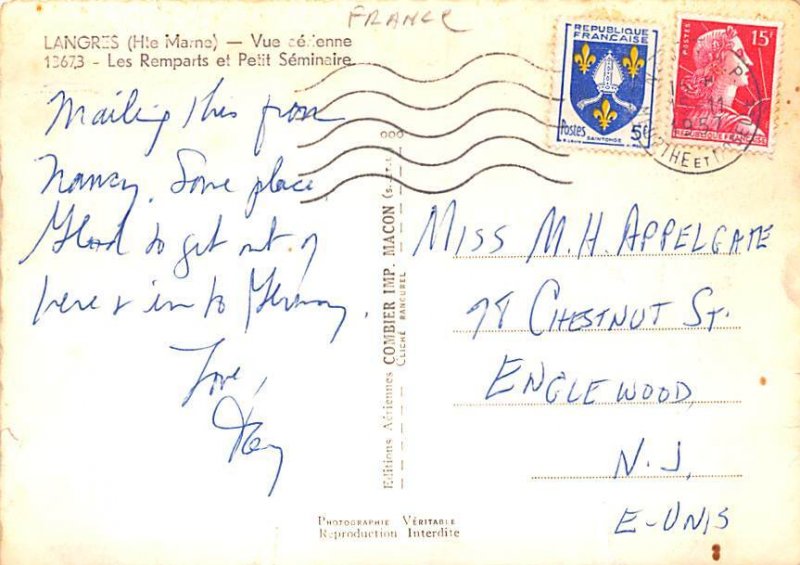 FRANCE
LANGRES (Hte Marne) — Vue aérienne
13673 - Les Remparts et Petit Séminaire
Mailing this from
Nancy. Some place
Glad to get out of
here & in to Germany.
Love,
REPUBLIQUE
FRANÇAISE
Postes 5f
SAINTONGE
POSTES
15F
REPUBLIQUE FRANÇAISE
MTHE ET M
Editions Aériennes COMBIER IMP. MACON
CLICHÉ RANCUREL
MISS M. H. APPELGATE
98 CHESTNUT ST.
ENGLEWOOD,
N. J.
E-UNIS
PHOTOGRAPHIE VÉRITABLE
Reproduction Interdite